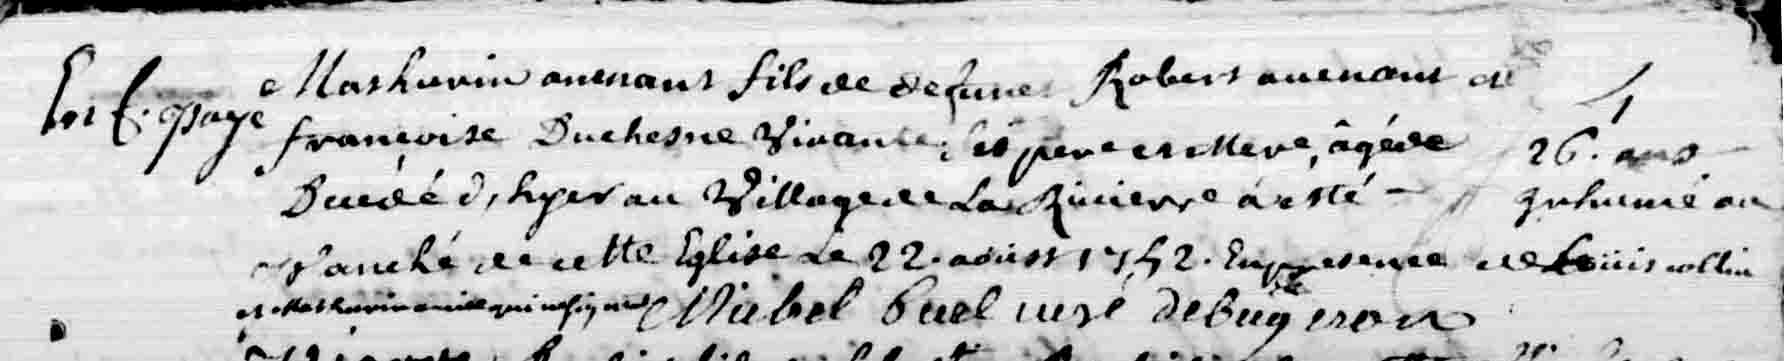 Mathurin auenant fils de defunt Robert auenant et
françoise Duchesne Vivante, ses pere et Mere, âgé de 26. ans
Decédé d'hyer au Village de La Riuierre á esté inhumé au
de cette Eglise Le 22. aoust 1752. En presence de Loüis collin
et Mathurin qui ne signe Michel buel curé